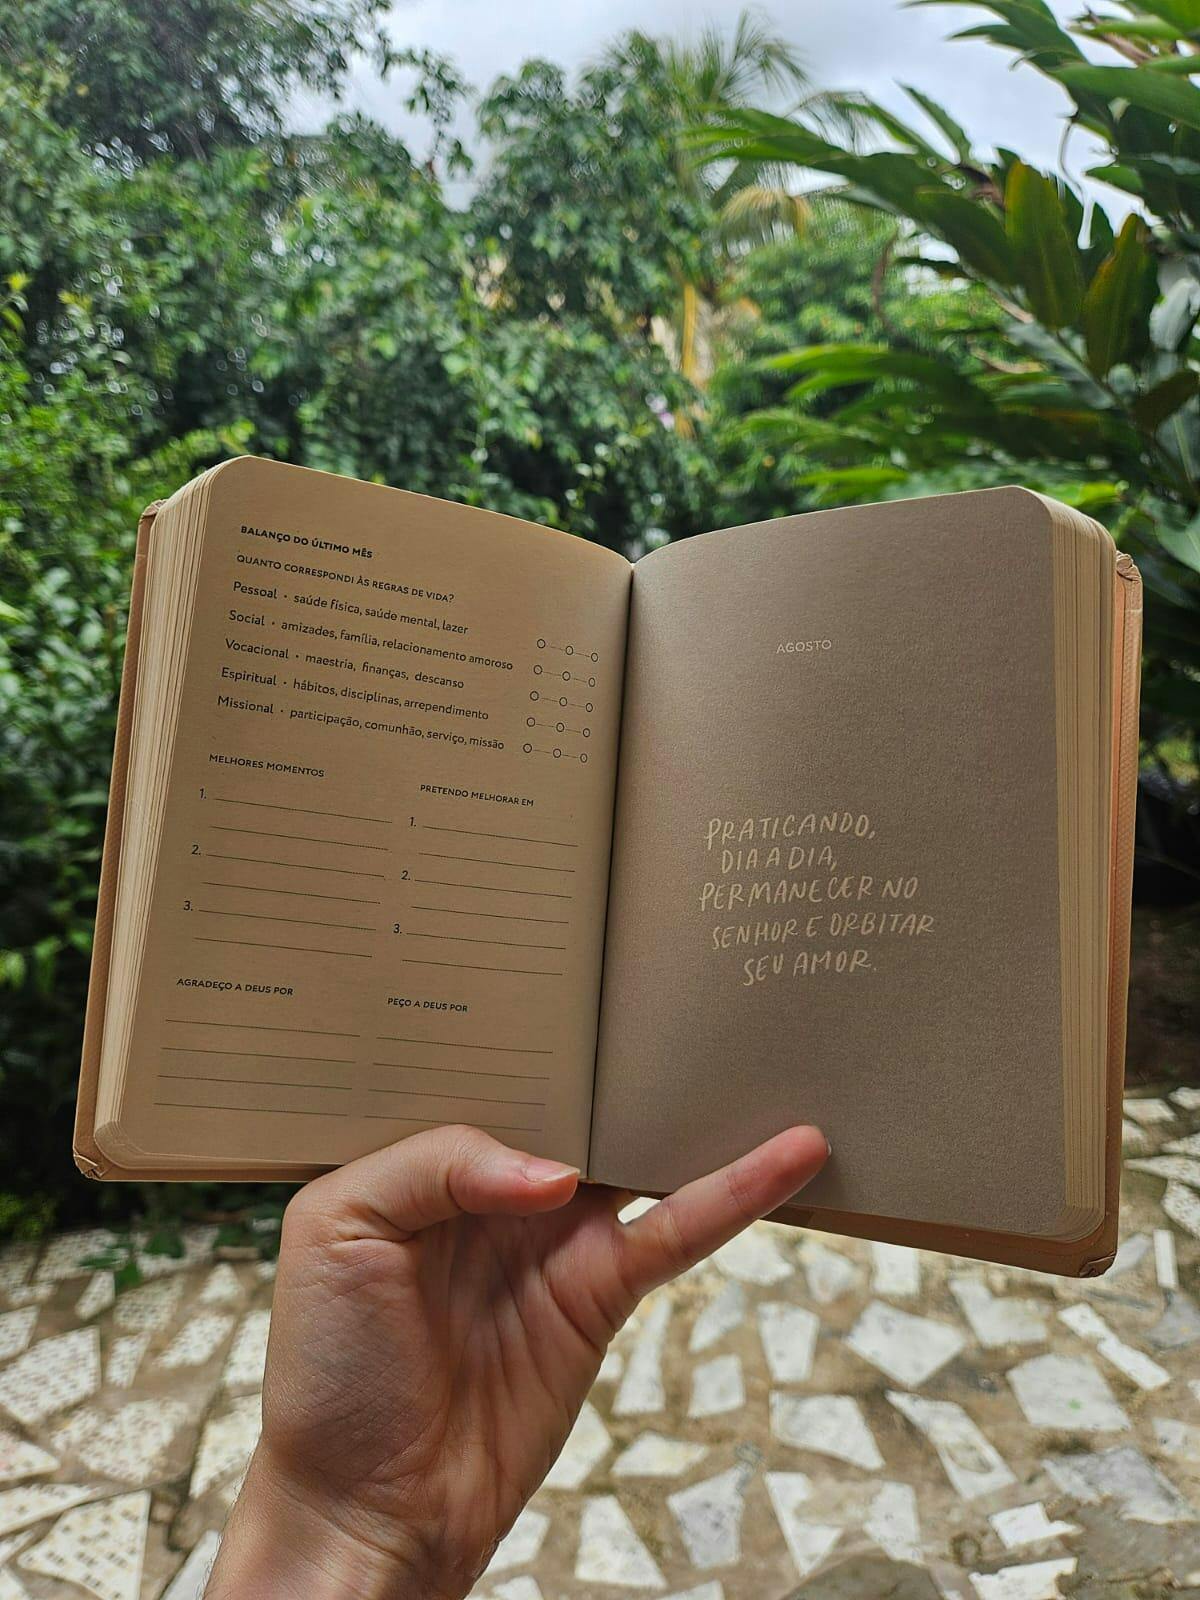 BALANÇO DO ÚLTIMO MÊS
QUANTO CORRESPONDI ÀS REGRAS DE VIDA?
Pessoal • saúde física, saúde mental, lazer
Social • amizades, família, relacionamento amoroso
Vocacional • maestria, finanças, descanso
Espiritual • hábitos, disciplinas, arrependimento
Missional • participação, comunhão, serviço, missão
MELHORES MOMENTOS
1.
2.
3.
PRETENDO MELHORAR EM
1.
2.
3.
AGRADEÇO A DEUS POR
PEÇO A DEUS POR
AGOSTO
PRATICANDO,
DIA A DIA,
PERMANECER NO
SENHOR E ORBITAR
SEU AMOR.